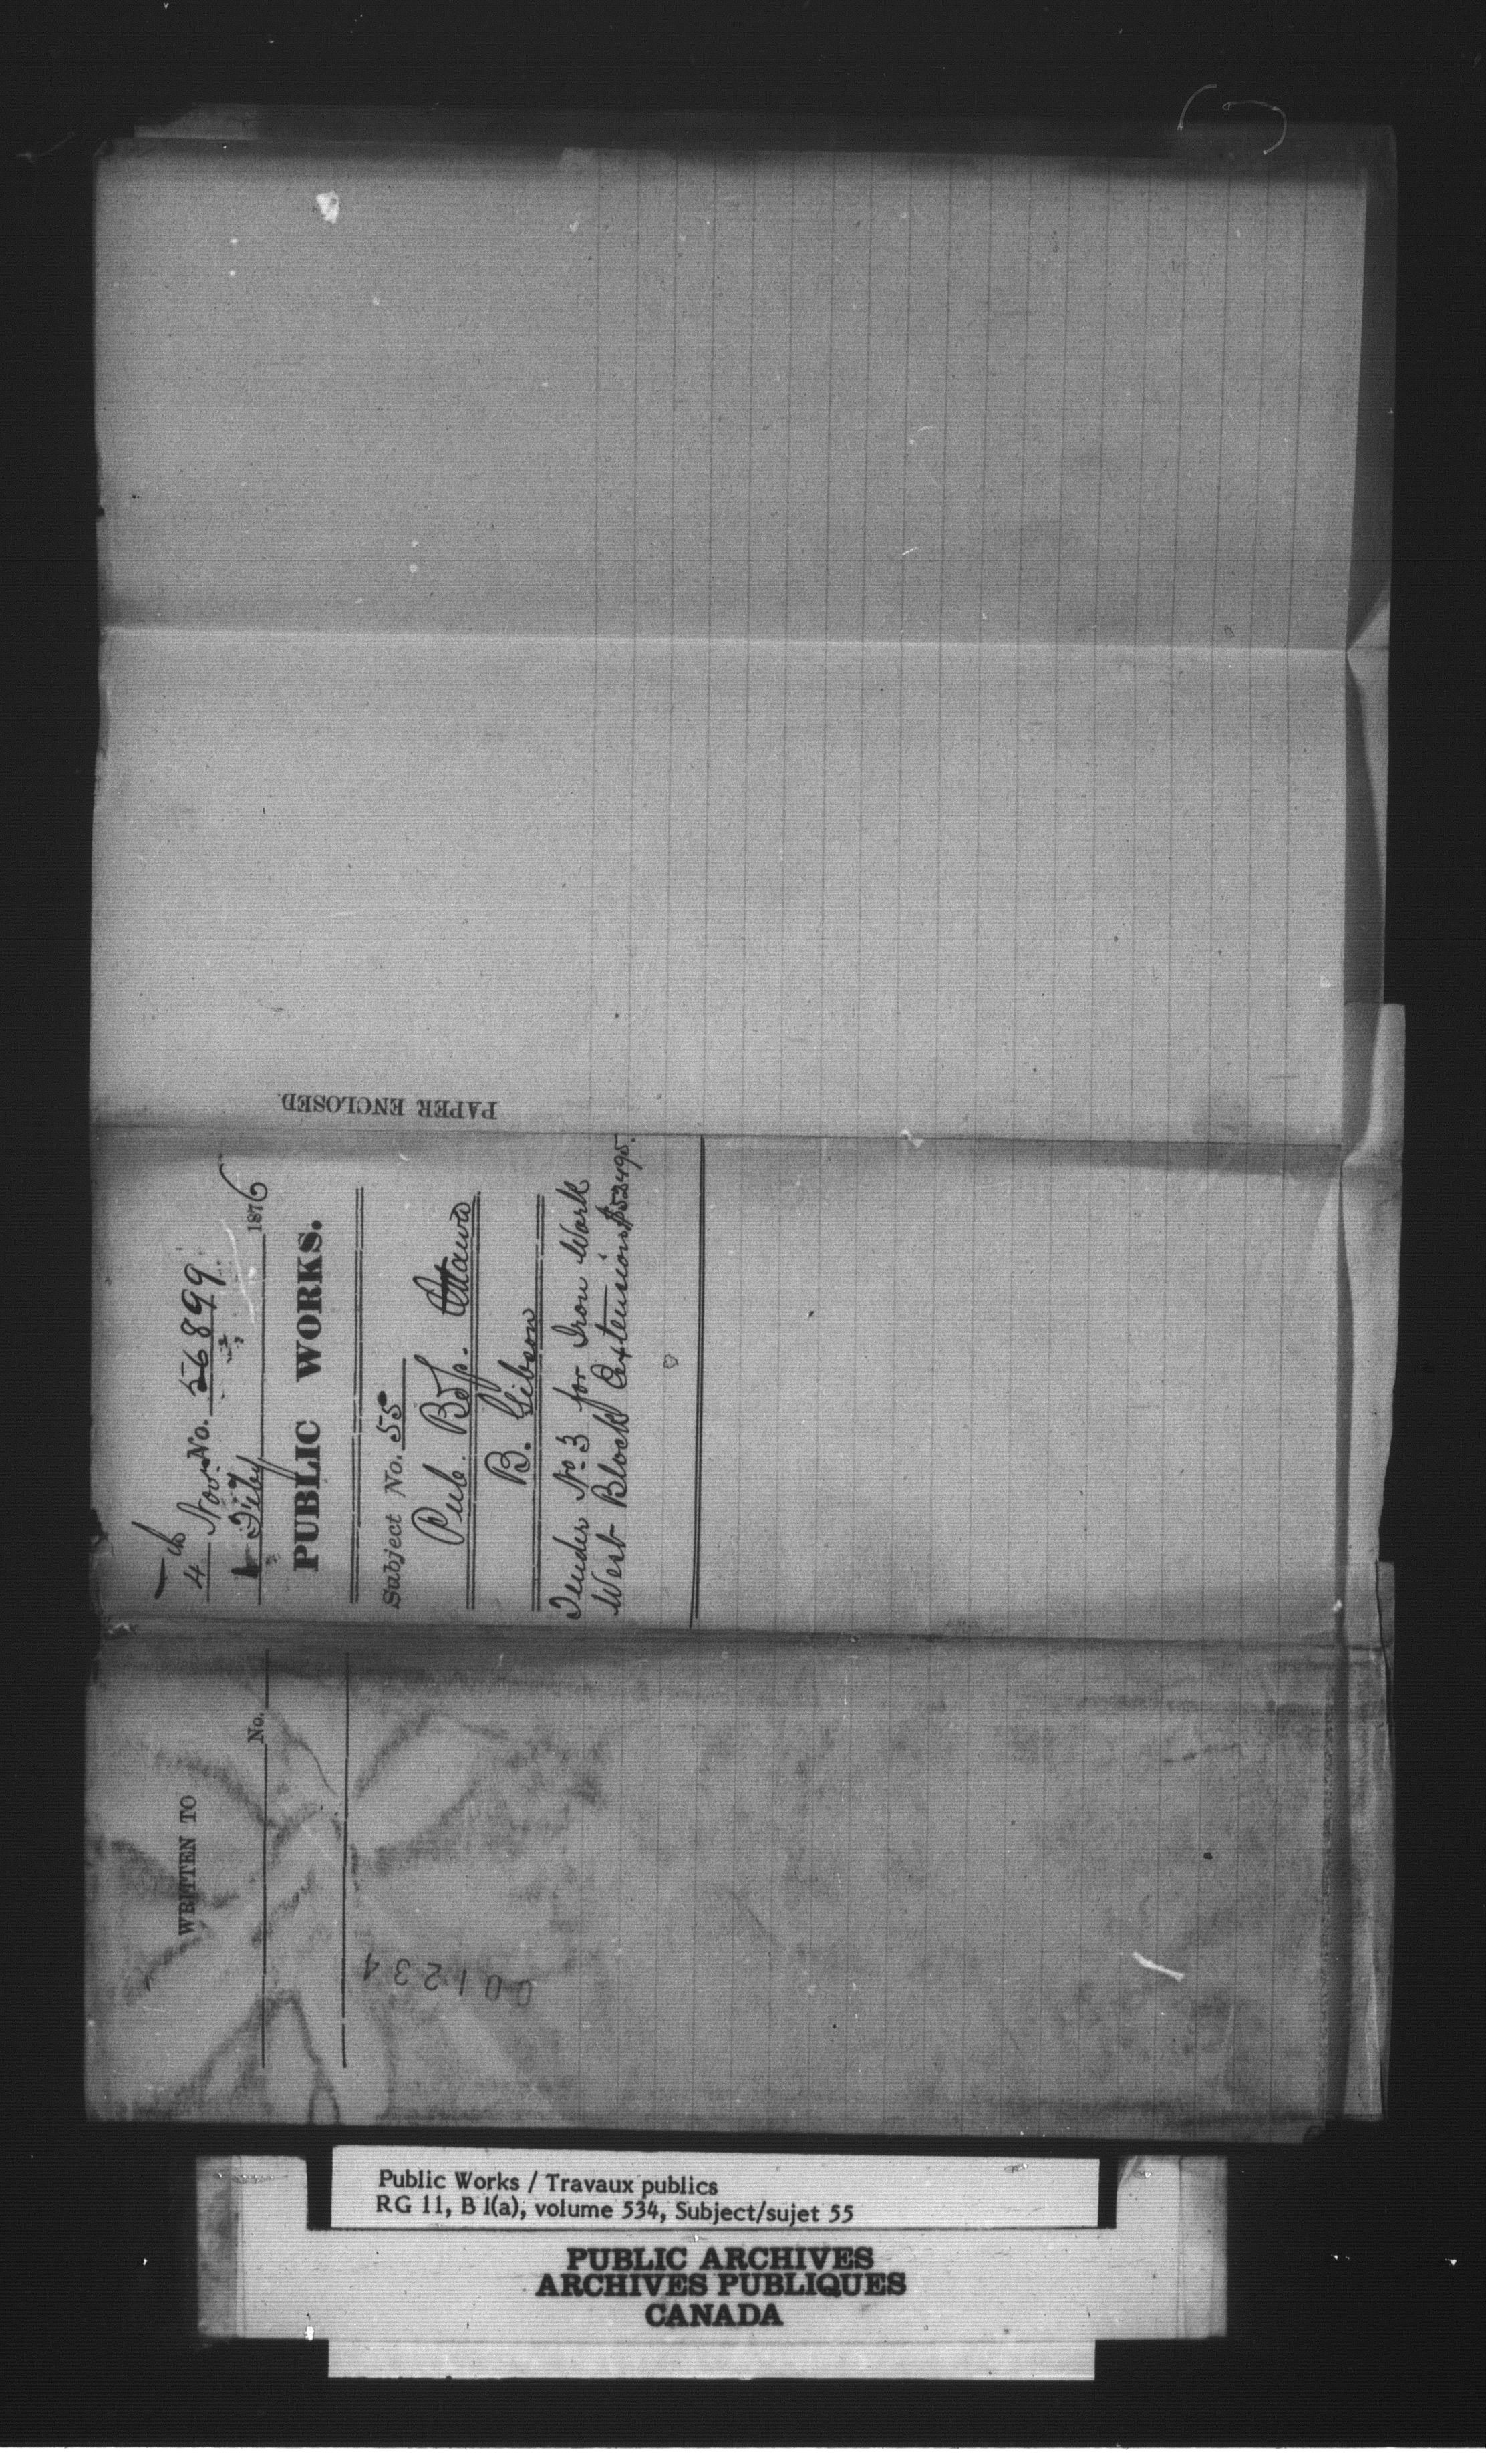 4th Nov. No. 56899
Feby 1876
PUBLIC WORKS.
Subject No. 55
Pub. Bdgs. Ottawa
B. Gibson
Tender No. 3 for Iron Work
West Block Extension $52495.
PAPER ENCLOSED.
WRITTEN TO
No.
001234
Public Works / Travaux publics
RG 11, B 1(a), volume 534, Subject/sujet 55
PUBLIC ARCHIVES
ARCHIVES PUBLIQUES
CANADA